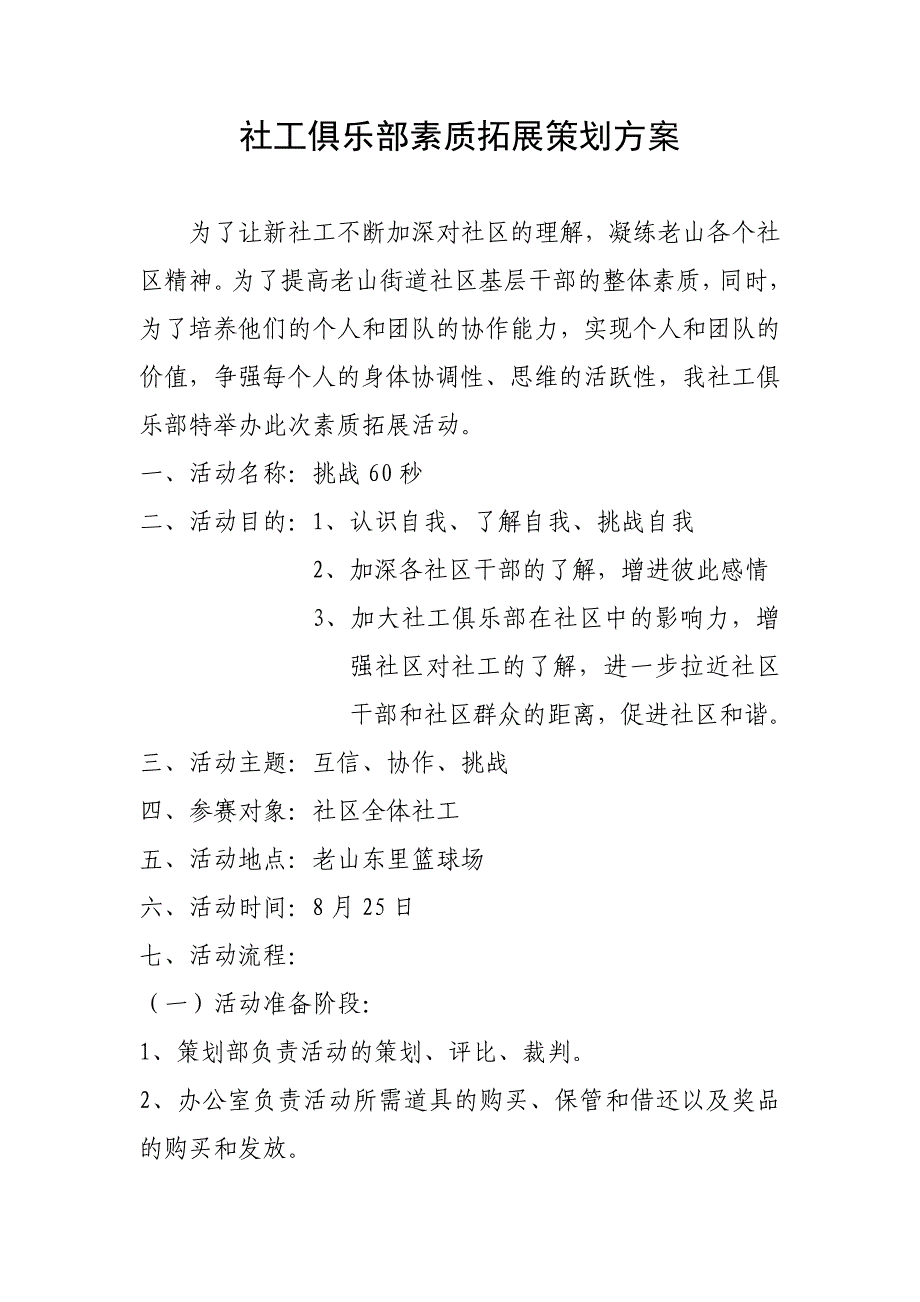 社工俱乐部素质拓展策划方案
为了让新社工不断加深对社区的理解，凝练老山各个社
区精神。为了提高老山街道社区基层干部的整体素质，同时，
为了培养他们的个人和团队的协作能力，实现个人和团队的
价值，争强每个人的身体协调性、思维的活跃性，我社工俱
乐部特举办此次素质拓展活动。
一、活动名称：挑战60秒
二、活动目的：1、认识自我、了解自我、挑战自我
2、加深各社区干部的了解，增进彼此感情
3、加大社工俱乐部在社区中的影响力，增
强社区对社工的了解，进一步拉近社区
干部和社区群众的距离，促进社区和谐。
三、活动主题：互信、协作、挑战
四、参赛对象：社区全体社工
五、活动地点：老山东里篮球场
六、活动时间：8月25日
七、活动流程：
（一）活动准备阶段：
1、策划部负责活动的策划、评比、裁判。
2、办公室负责活动所需道具的购买、保管和借还以及奖品
的购买和发放。